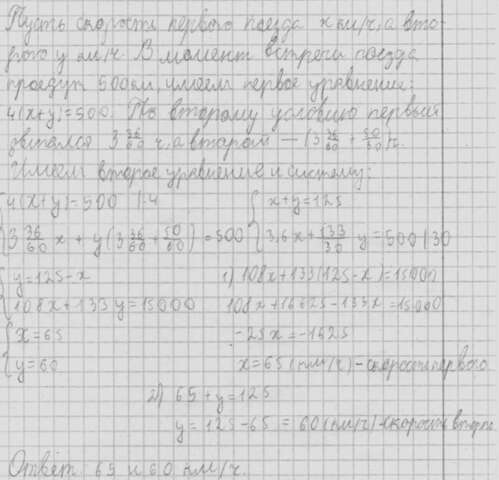 Пусть скорость первого поезда x км/ч, а вто-
рого y км/ч. В момент встречи поезда
проедут 500 км, имеем первое уравнение:
4(x+y)=500. По второму условию первый
двигался 3 36/60 ч, а второй — (3 36/60 + 50/60)ч.
Имеем второе уравнение и систему:
{ 4(x+y)=500 |:4 { x+y=125
3 36/60 x + y(3 36/60 + 50/60) = 500 3,6x + 133/30 y = 500 |30
{ y=125-x 1) 108x+133(125-x)=15000
108x+133y=15000 108x+16625-133x=15000
{ x=65 -25x=-1625
y=60 x=65 (км/ч) - скорость первого
2) 65+y=125
y=125-65=60 (км/ч) - скорость второго
Ответ: 65 и 60 км/ч.